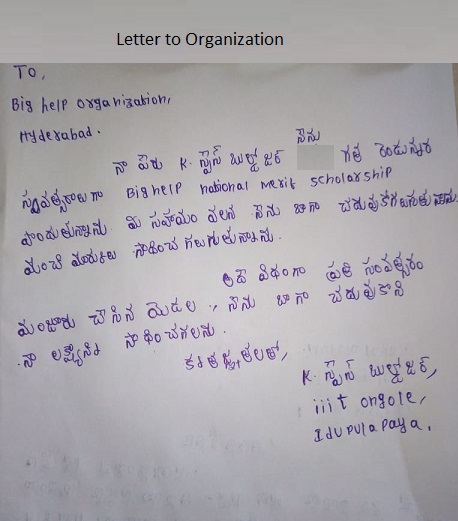 Letter to Organization
To,
Big help organization,
Hyderabad.
నా పేరు K. స్టైన్ బుల్డోజర్ నేను గత రెండున్నర
సంవత్సరాలు గా BigHelp national merit scholarship
పొందుతున్నాను మీ సహాయం వలన నేను బాగా చదువుకోగలుగుతున్నాను.
మంచి మార్కులు సాధించ గలుగుతున్నాను.
అదే విధంగా ప్రతి సంవత్సరం
మంజూరు చేసిన యెడల , నేను బాగా చదువుకొని
నా లక్ష్యాన్ని సాధించగలను.
కృతజ్ఞతలతో,
K. బుల్డోజర్,
iiit ongole,
Idupulapaya.